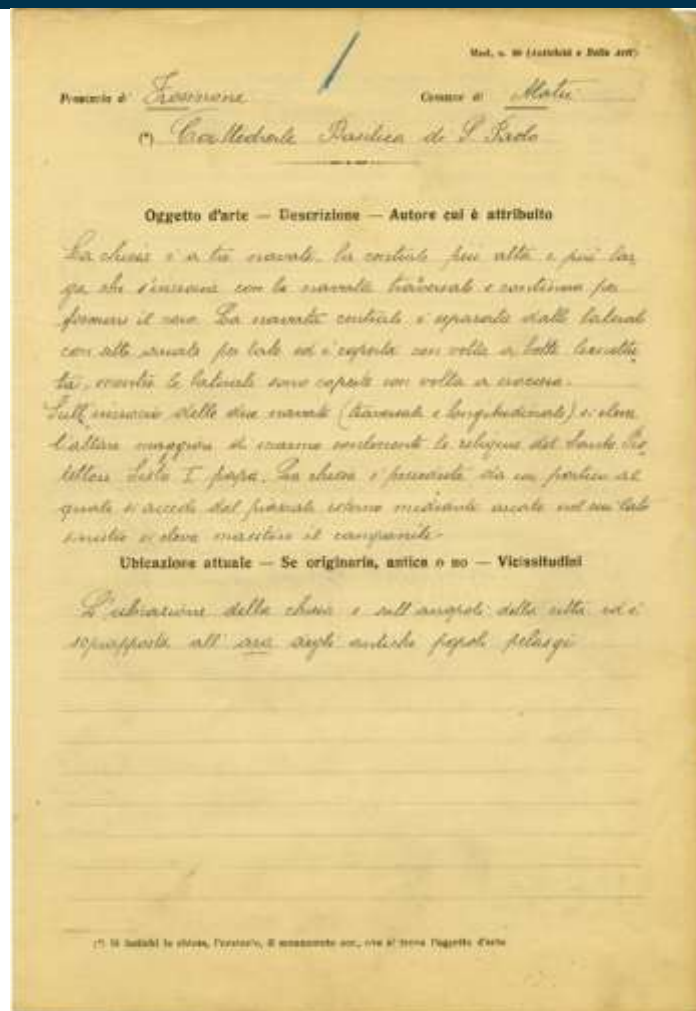 Mod. n. 30 (Antichità e Belle Arti)
Provincia di Frosinone Comune di Alatri
(*) Cattedrale Basilica di S Paolo
Oggetto d'arte — Descrizione — Autore cui è attribuito
La chiesa è a tre navate, la centrale più alta e più lar
ga che s'incrocia con la navata trasversale e continua per
formare il coro. La navata centrale è separata dalle laterali
con sette arcate per lato ed è coperta con volta a botte lunetta
ta, mentre le laterali sono coperte con volta a crociera.
Sull'incrocio delle due navate (trasversale e longitudinale) si eleva
l'altare maggiore di marmo contenente le reliquie del Santo Pro
tettore Sisto I papa. La chiesa è preceduta da un portico al
quale si accede dal piazzale esterno mediante arcate nel cui lato
sinistro si eleva maestoso il campanile.
Ubicazione attuale — Se originaria, antica o no — Vicissitudini
L'ubicazione della chiesa è sull'acropoli della città ed è
sovrapposta all'ara degli antichi popoli pelasgi
(*) Si indichi la chiesa, l'edificio, il monumento ecc., ove si trova l'oggetto d'arte